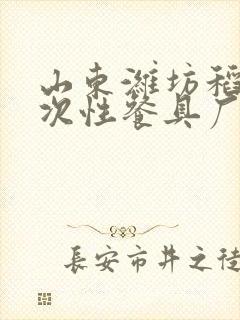 山东潍坊稻
次性餐具厂
長安市井之徒